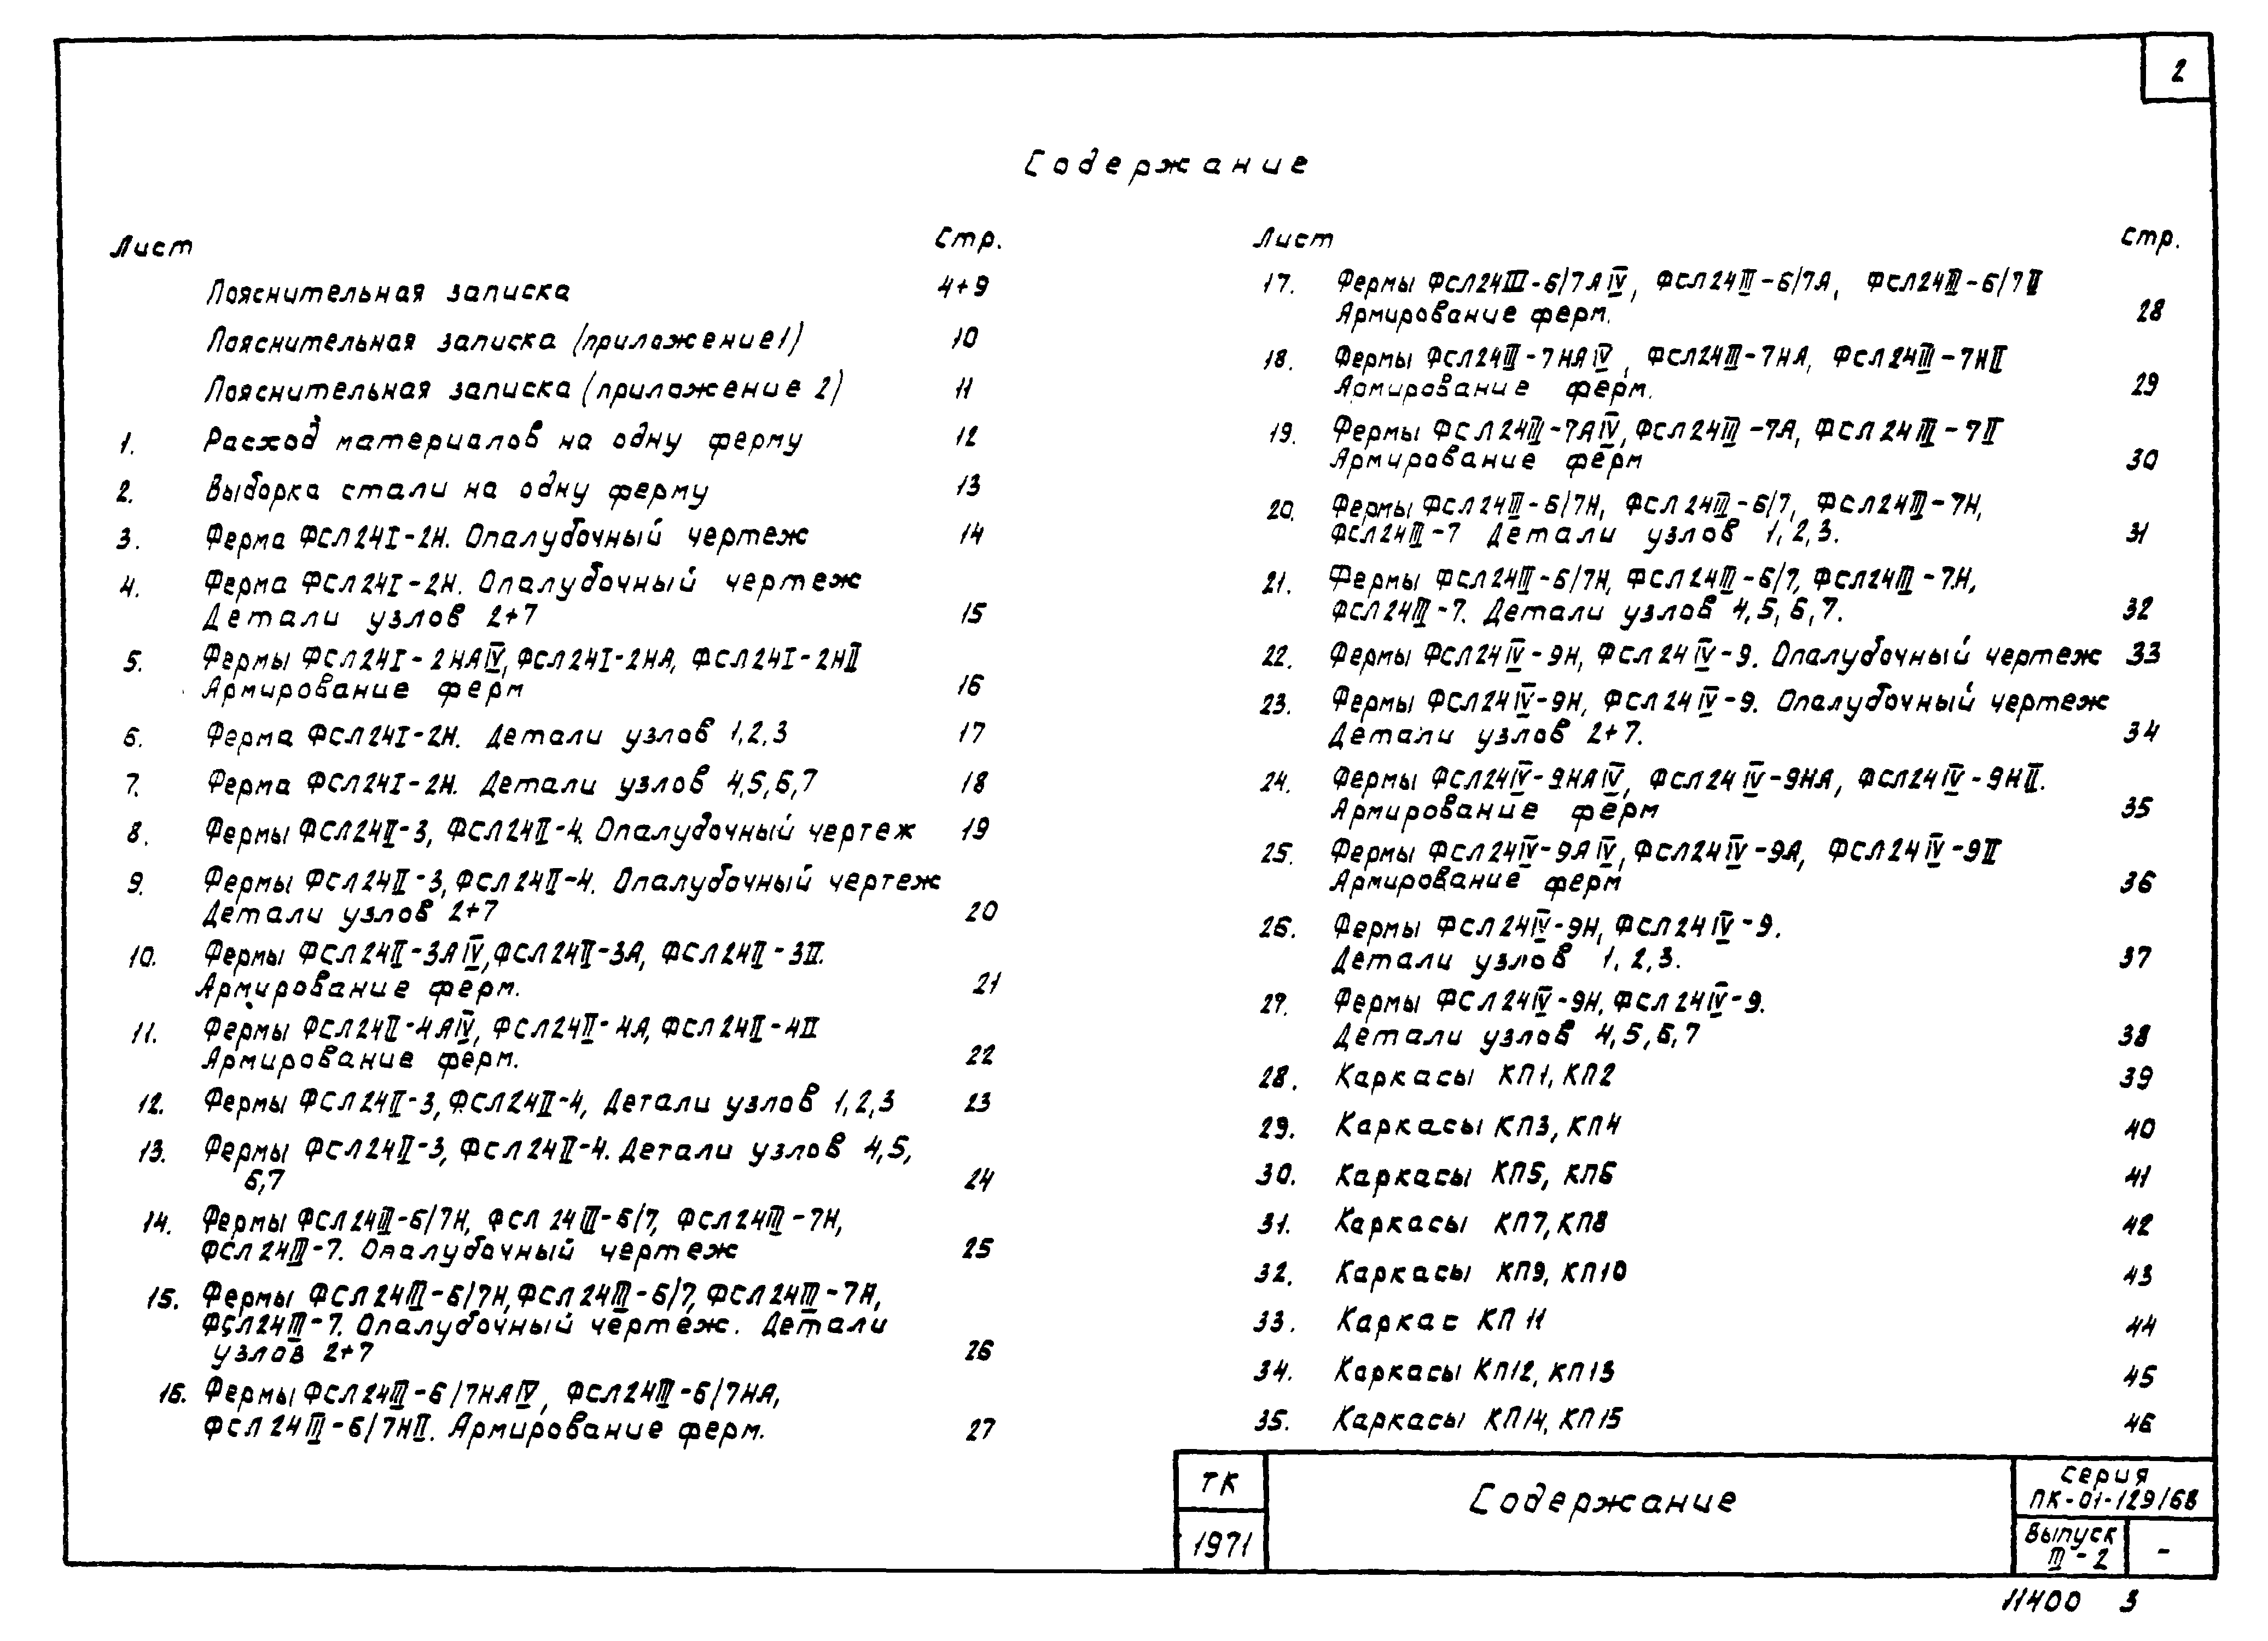 2
Содержание
Лист Стр.
Пояснительная записка 4÷9
Пояснительная записка (приложение 1) 10
Пояснительная записка (приложение 2) 11
1. Расход материалов на одну ферму 12
2. Выборка стали на одну ферму 13
3. Ферма ФСЛ24I-2Н. Опалубочный чертеж 14
4. Ферма ФСЛ24I-2Н. Опалубочный чертеж
Детали узлов 2÷7 15
5. Фермы ФСЛ24I-2НАIV, ФСЛ24I-2НА, ФСЛ24I-2НII
Армирование ферм 16
6. Ферма ФСЛ24I-2Н. Детали узлов 1,2,3 17
7. Ферма ФСЛ24I-2Н. Детали узлов 4,5,6,7 18
8. Фермы ФСЛ24II-3, ФСЛ24II-4. Опалубочный чертеж 19
9. Фермы ФСЛ24II-3, ФСЛ24II-4. Опалубочный чертеж
Детали узлов 2÷7 20
10. Фермы ФСЛ24II-3АIV, ФСЛ24II-3А, ФСЛ24II-3II.
Армирование ферм. 21
11. Фермы ФСЛ24II-4АIV, ФСЛ24II-4А, ФСЛ24II-4II
Армирование ферм. 22
12. Фермы ФСЛ24II-3, ФСЛ24II-4, Детали узлов 1,2,3 23
13. Фермы ФСЛ24II-3, ФСЛ24II-4. Детали узлов 4,5,
6,7 24
14. Фермы ФСЛ24III-6/7Н, ФСЛ24III-6/7, ФСЛ24III-7Н,
ФСЛ24III-7. Опалубочный чертеж 25
15. Фермы ФСЛ24III-6/7Н, ФСЛ24III-6/7, ФСЛ24III-7Н,
ФСЛ24III-7. Опалубочный чертеж. Детали
узлов 2÷7 26
16. Фермы ФСЛ24III-6/7НАIV, ФСЛ24III-6/7НА,
ФСЛ24III-6/7НII. Армирование ферм. 27
Лист стр.
17. Фермы ФСЛ24III-6/7АIV, ФСЛ24III-6/7А, ФСЛ24III-6/7II
Армирование ферм. 28
18. Фермы ФСЛ24III-7НАIV, ФСЛ24III-7НА, ФСЛ24III-7НII
Армирование ферм. 29
19. Фермы ФСЛ24III-7АIV, ФСЛ24III-7А, ФСЛ24III-7II
Армирование ферм 30
20. Фермы ФСЛ24III-6/7Н, ФСЛ24III-6/7, ФСЛ24III-7Н,
ФСЛ24III-7 Детали узлов 1,2,3. 31
21. Фермы ФСЛ24III-6/7Н, ФСЛ24III-6/7, ФСЛ24III-7Н,
ФСЛ24III-7. Детали узлов 4,5,6,7. 32
22. Фермы ФСЛ24IV-9Н, ФСЛ24IV-9. Опалубочный чертеж 33
23. Фермы ФСЛ24IV-9Н, ФСЛ24IV-9. Опалубочный чертеж
Детали узлов 2÷7. 34
24. Фермы ФСЛ24IV-9НАIV, ФСЛ24IV-9НА, ФСЛ24IV-9НII.
Армирование ферм 35
25. Фермы ФСЛ24IV-9АIV, ФСЛ24IV-9А, ФСЛ24IV-9II
Армирование ферм 36
26. Фермы ФСЛ24IV-9Н, ФСЛ24IV-9.
Детали узлов 1,2,3. 37
27. Фермы ФСЛ24IV-9Н, ФСЛ24IV-9.
Детали узлов 4,5,6,7 38
28. Каркасы КП1, КП2 39
29. Каркасы КП3, КП4 40
30. Каркасы КП5, КП6 41
31. Каркасы КП7, КП8 42
32. Каркасы КП9, КП10 43
33. Каркас КП 11 44
34. Каркасы КП12, КП13 45
35. Каркасы КП14, КП15 46
ТК
1971
Содержание
серия
ПК-01-129/68
Выпуск
III-2
-
11400 3